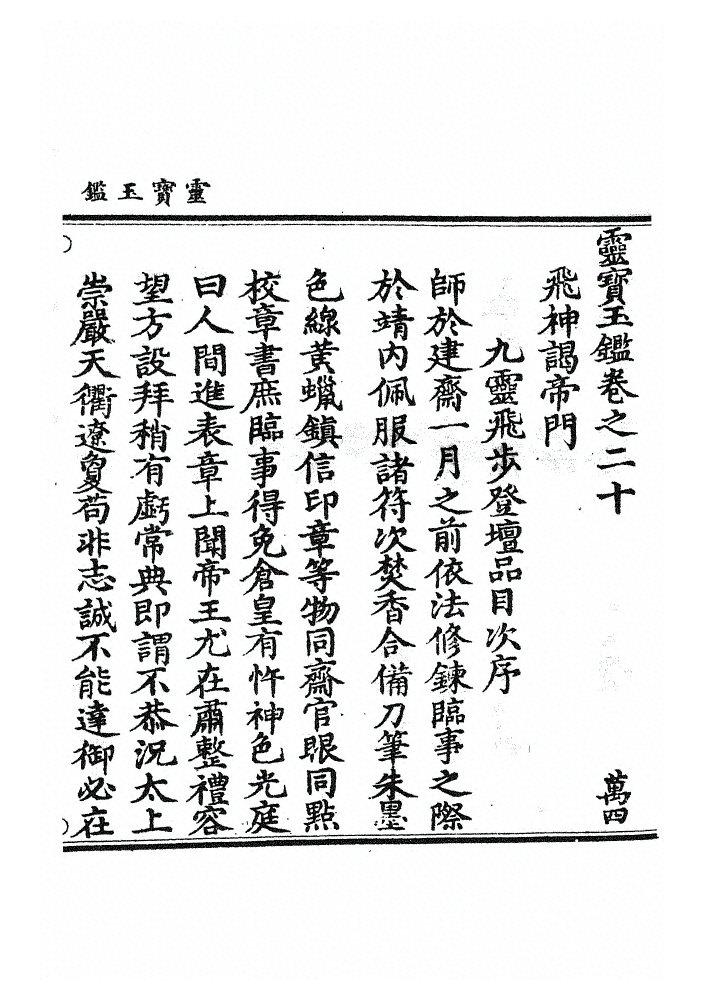 靈寶玉鑑
靈寶玉鑑卷之二十
萬四
飛神謁帝門
九靈飛步登壇品目次序
師於建齋一月之前依法修鍊臨事之際
於靖內佩服諸符次焚香合備刀筆朱墨
色線黃蠟鎮信印章等物同齋官眼同點
校章書庶臨事得免倉皇有忤神色光庭
曰人間進表章上聞帝王尤在肅整禮容
望方設拜稍有虧常典即謂不恭況太上
崇嚴天衢遼敻苟非志誠不能達御必在